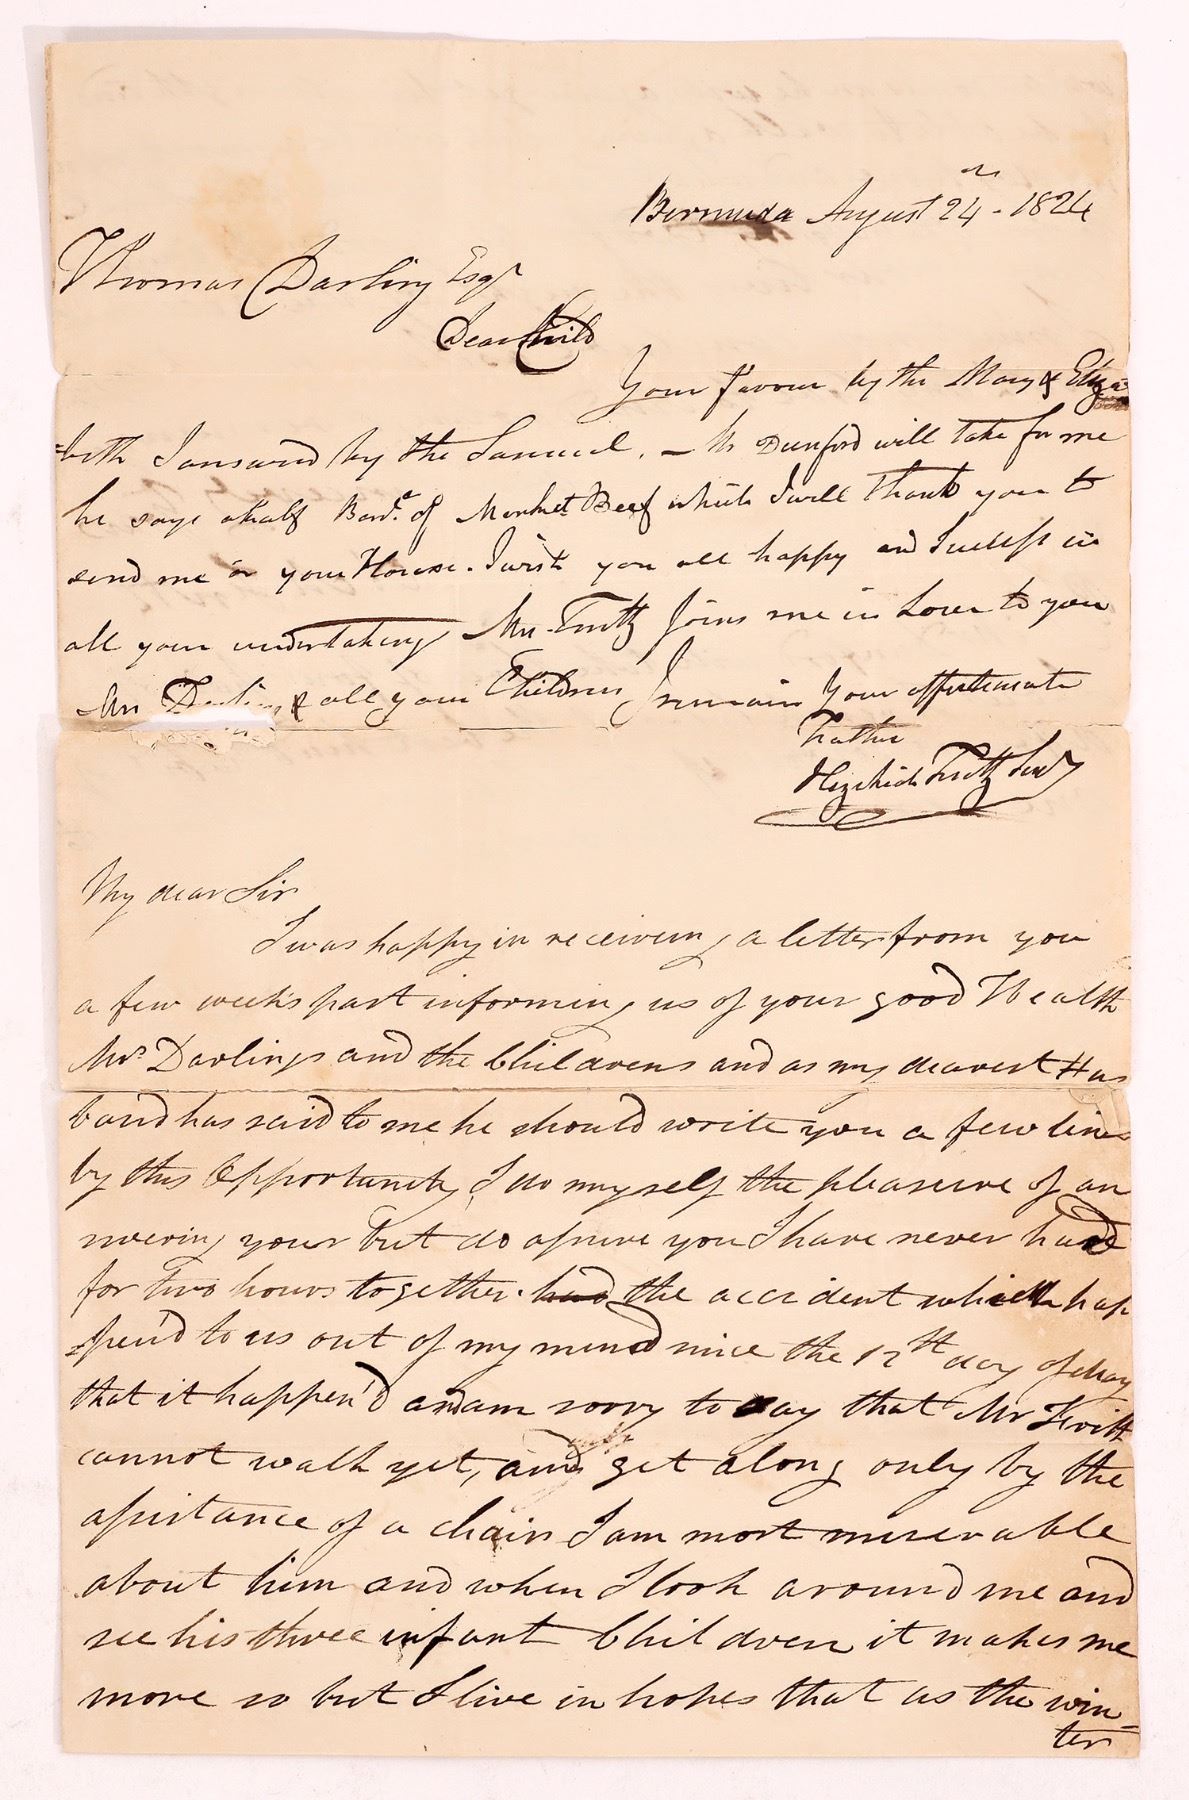 Bermuda August 24th 1824
Thomas Darling Esqr
Dear Child
Your favour by the Mary & Eliza
=beth I answerd by the Samuel. - Mr Dunford will take for me
he says a half Barrl. of Market Beef which I will thank you to
send me or your House. I wish you all happy and Suckss in
all your undertakings Mrs Frith Joins me in Love to you
Mrs Darling & all your Children I remain Your affectionate
Father
Hezekiah Frith Senr
My dear Sir
I was happy in receiveing a letter from you
a few weeks past informing us of your good Health
Mrs Darlings and the Childrens and as my dearest Hus
band has said to me he should write you a few lines
by this Opportunity I do myself the pleasure of an
swering your but do assure you I have never had
for two hours together. had the accident which hap
=pen'd to us out of my mind since the 12th day of May
that it happen'd and am sorry to say that Mr Frith
cannot walk yet, and get along only by the
assistance of a chair I am most miserable
about him and when I look around me and
see his three infant Children it makes me
more so but I live in hopes that as the win-
ter